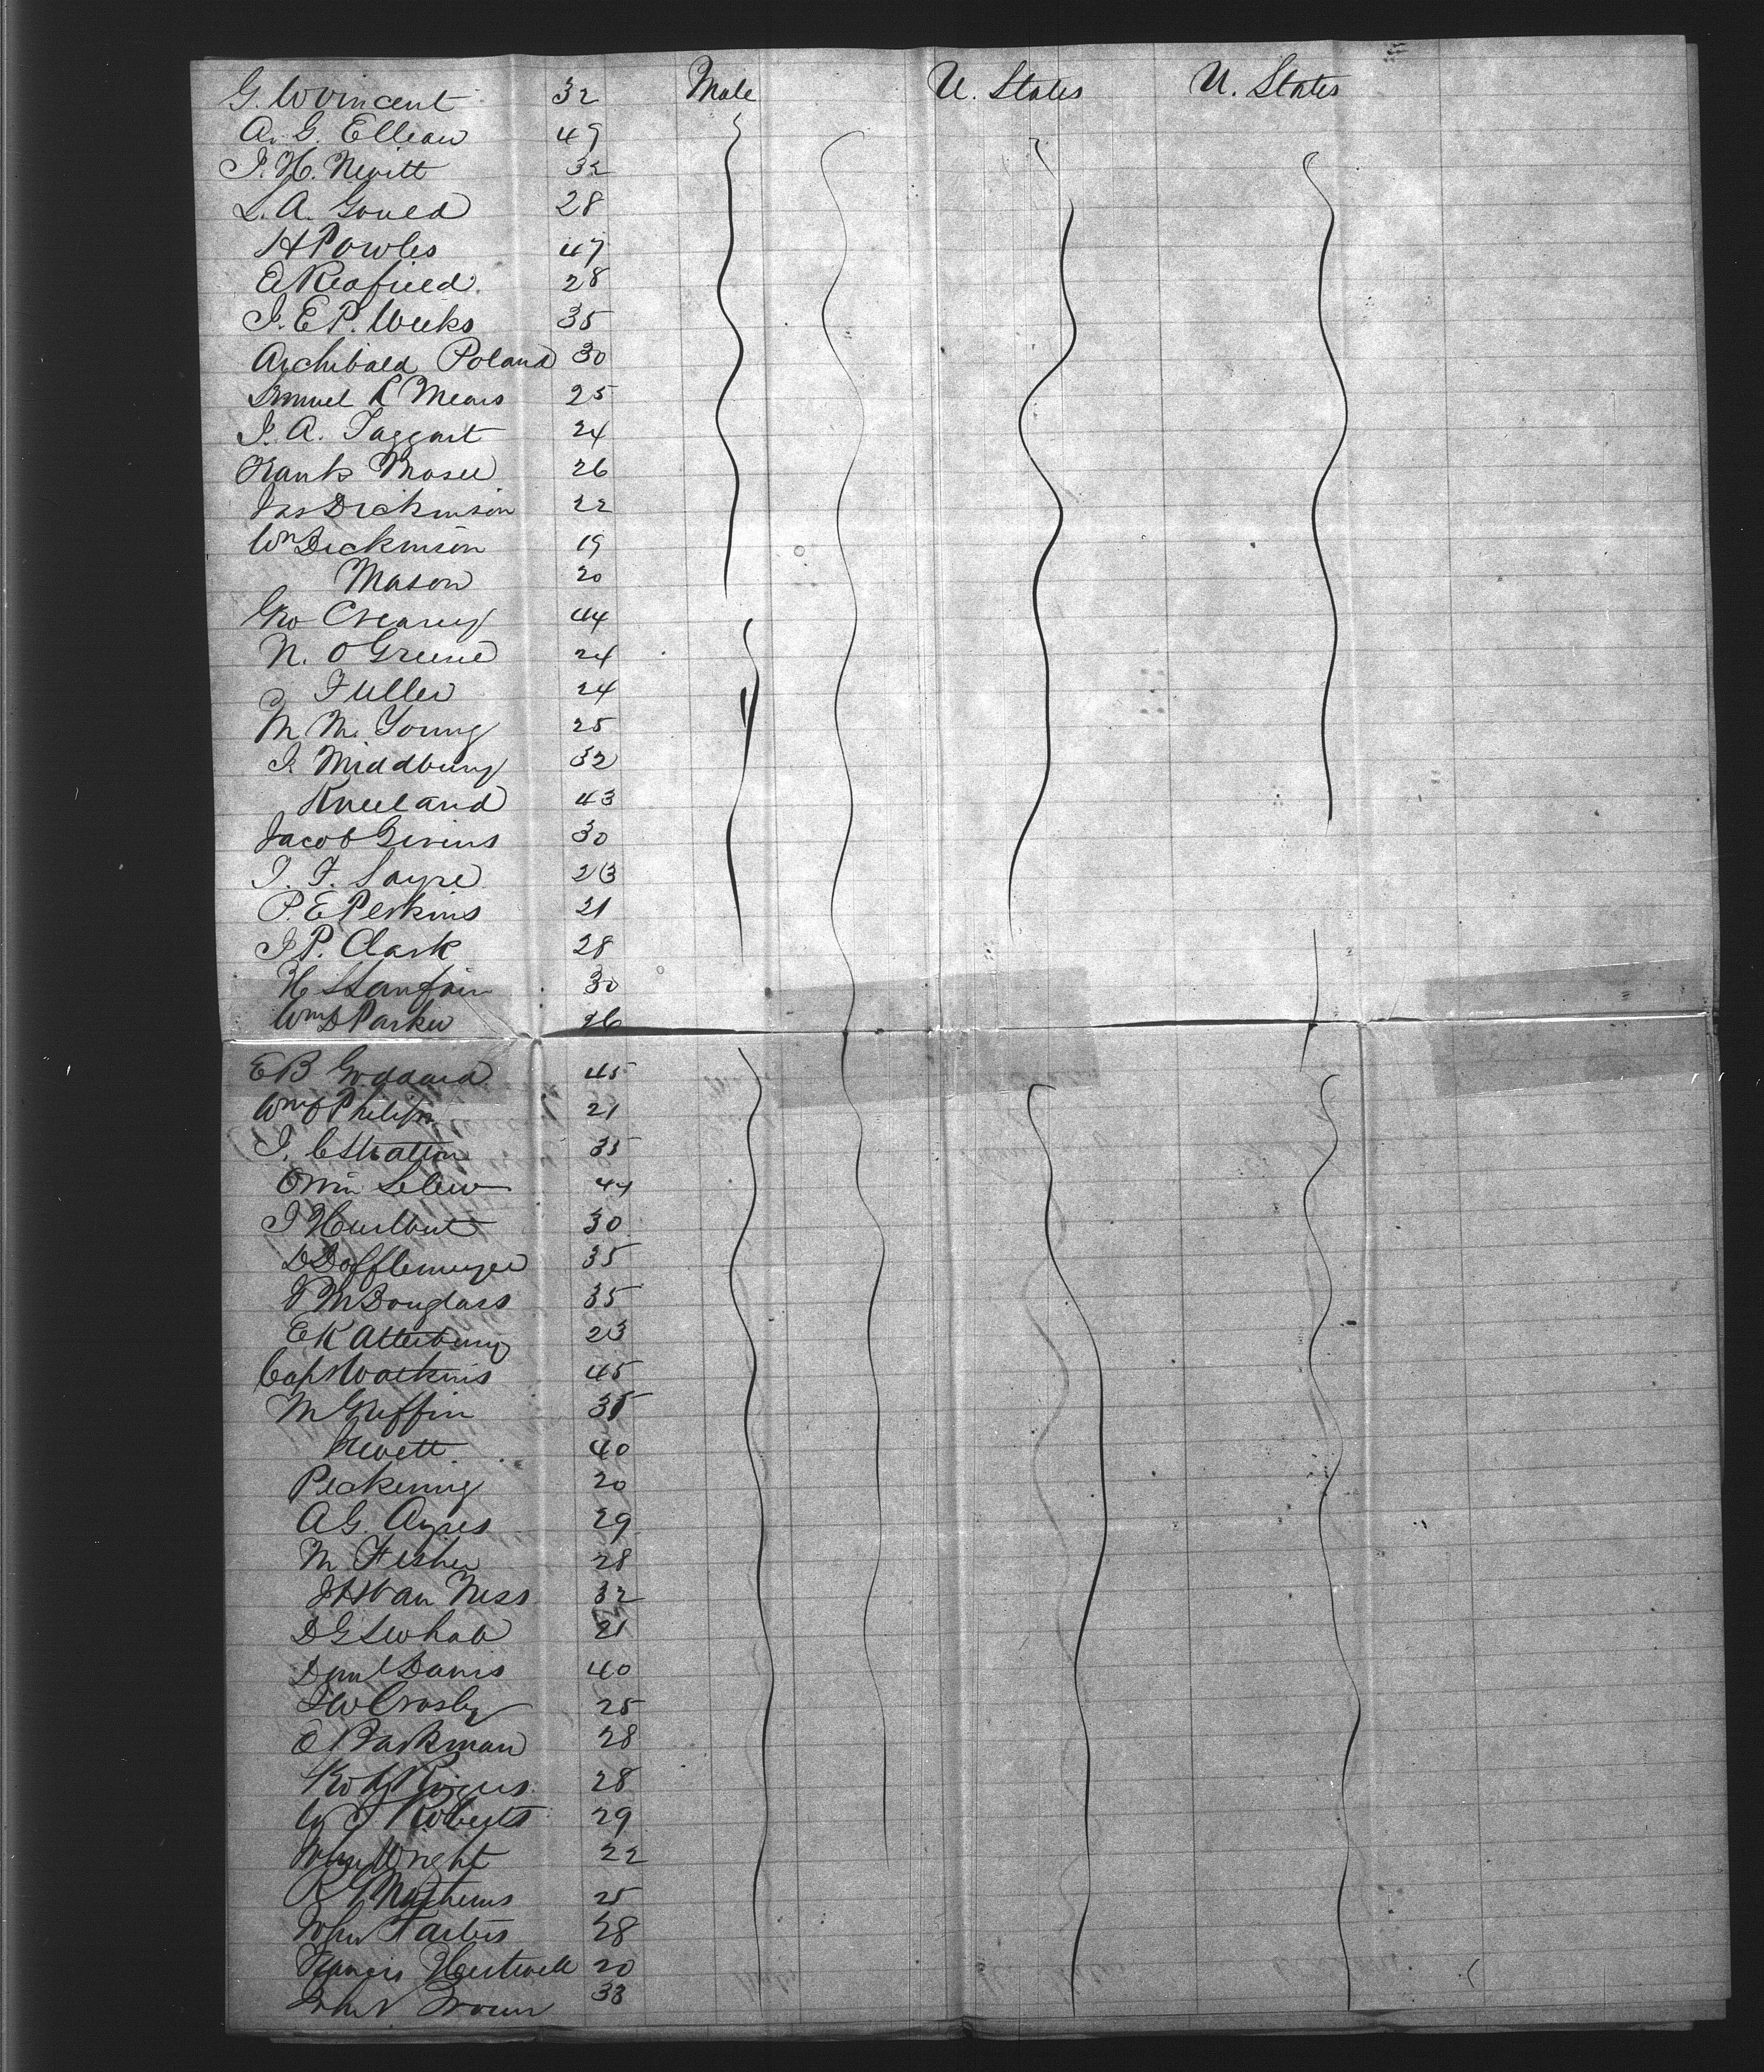 G. W Vincent 32 Male U. States U. States
A. G. Elleau 49
J. H. Nevitt 32
L. A. Gould 28
H Powles 47
E Reafield 28
J. E P. Weeks 35
Archibald Poland 30
Samuel R Mears 25
J. A. Taggart 24
Frank Mosee 26
Jas Dickinson 22
Wm Dickinson 19
Mason 20
Geo Crearey 44
N. O Greene 24
Fuller 24
M. M. Young 25
J. Middbury 32
Kneeland 43
Jacob Givins 30
J. F. Sayre 23
P. E Perkins 21
J P. Clark 28
H Stanfair 30
Wm D Parker 26
E B Goddard 45
Wm Philips 21
J. C Stratton 35
Orrin 44
J Hurlbut 30
D Dofflemeyer 35
J M Douglass 35
E K Atterbury 23
Capt Watkins 45
M Griffin 35
Hewett 40
Peckering 20
A G. Ayres 29
M Fisher 28
J H Van Ness 32
D G 21
Danl Davis 40
J W Crosby 25
O Parkman 28
Robt Rogers 28
Roberts 29
John Wright 22
R G Mathews 25
John Farters 28
Francis Hertwell 20
John Brown 33